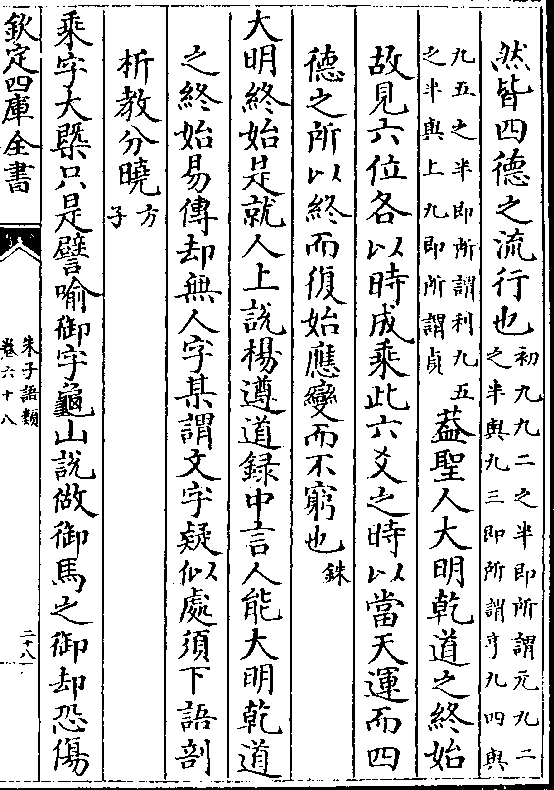 然皆四德之流行也初九九二之半即所謂元九二
之半與九三即所謂亨九四與
九五之半即所謂利九五
之半與上九即所謂貞
葢聖人大明乾道之終始
故見六位各以時成乘此六爻之時以當天運而四
德之所以終而復始應變而不窮也銖
大明終始是就人上說楊遵道録中言人能大明乾道
之終始易傳却無人字某謂文字疑似處須下語剖
析教分曉方
子
乘字大槩只是譬喻御字龜山說做御馬之御却恐傷
欽定四庫全書
朱子語類
卷六十八
二十八